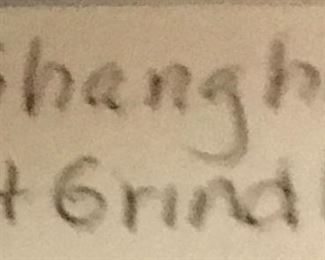 hangh
+ Grind